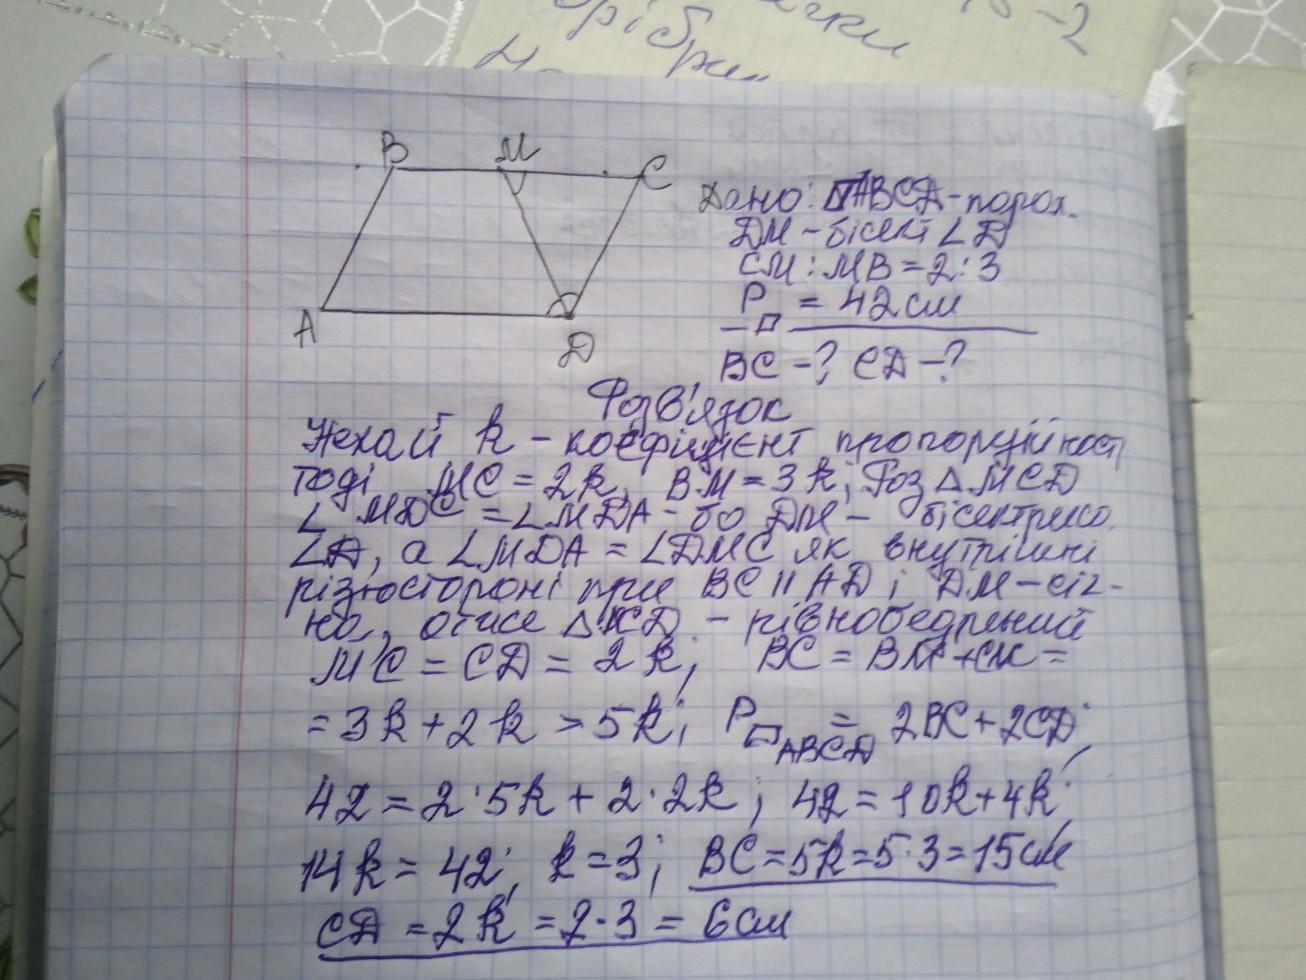 B M C
A D
Дано: ▱ABCD - парал.
DM - бісект ∠D
CM : MB = 2 : 3
P▱ = 42 см
BC - ? CD - ?
Розв'язок
Нехай k - коефіцієнт пропорційност
тоді MC = 2k, BM = 3k; Роз △MCD
∠MDC = ∠MDA - бо DM - бісектриса
∠D, а ∠MDA = ∠DMC як внутрішні
різносторонні при BC || AD і DM - січ-
на, отже △ - рівнобедрений
MC = CD = 2k; BC = BM + CM =
= 3k + 2k = 5k; P▱ABCD = 2BC + 2CD;
42 = 2·5k + 2·2k; 42 = 10k + 4k;
14k = 42; k = 3; BC = 5k = 5·3 = 15 см
CD = 2k = 2·3 = 6 см